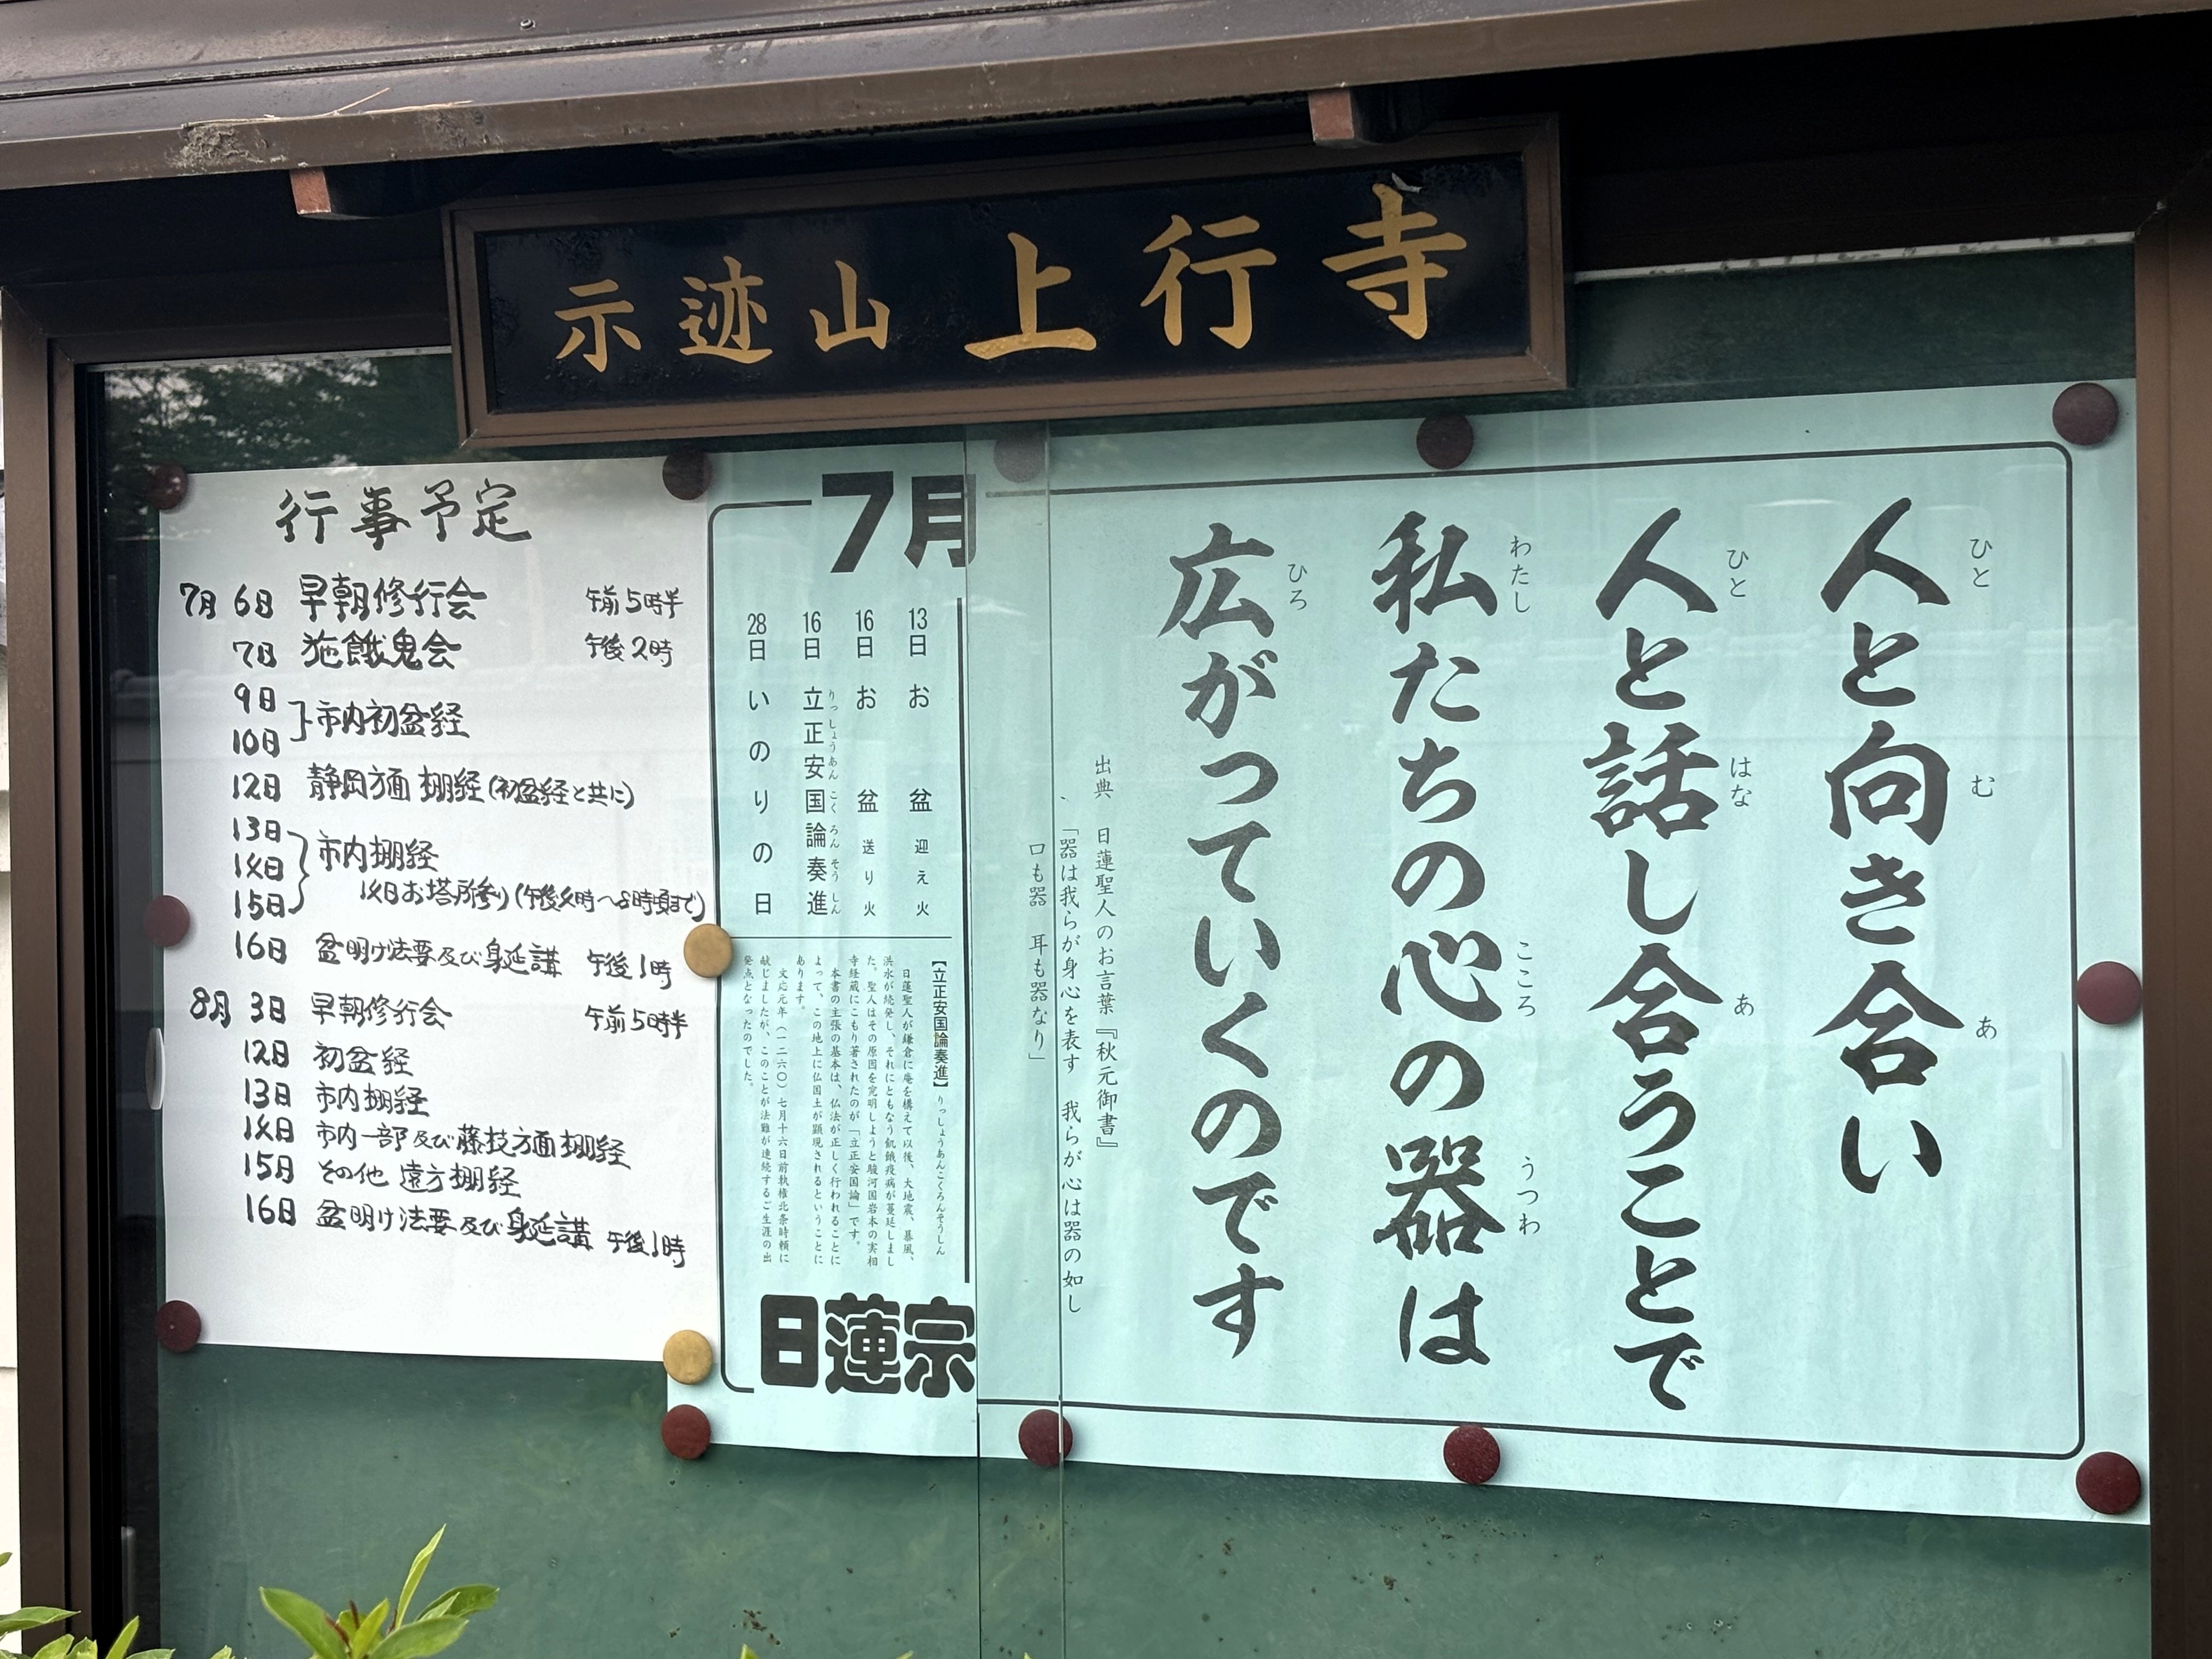 示迹山 上行寺
人と向き合い
人と話し合うことで
私たちの心の器は
広がっていくのです
ひと
む
あ
ひと
はな
あ
わたし
こころ
うつわ
ひろ
出典 日蓮聖人のお言葉『秋元御書』
「器は我らが身心を表す 我らが心は器の如し
口も器 耳も器なり」
7月
13日 お盆 迎え火
16日 お盆 送り火
16日 立正安国論奏進
りっしょうあんこくろんそうしん
28日 いのりの日
【立正安国論奏進】りっしょうあんこくろんそうしん
日蓮聖人が鎌倉に庵を構えて以後、大地震、暴風、
洪水が続発し、それにともなう飢餓疫病が蔓延しまし
た。聖人はその原因を究明しようと駿河国岩本の実相
寺経蔵にこもり著されたのが「立正安国論」です。
本書の主張の基本は、仏法が正しく行われることに
よって、この地上に仏国土が顕現されるということに
あります。
文応元年（一二六〇）七月十六日前執権北条時頼に
献じましたが、このことが法難が連続するご生涯の出
発点となったのでした。
日蓮宗
行事予定
7月 6日 早朝修行会 午前5時半
7日 施餓鬼会 午後2時
9日
10日 市内初盆経
12日 静岡方面棚経(初盆経と共に)
13日
14日 市内棚経
15日 14日お塔所参り(午後4時〜8時頃まで)
16日 盆明け法要及び身延講 午後1時
8月 3日 早朝修行会 午前5時半
12日 初盆経
13日 市内棚経
14日 市内一部及び藤枝方面棚経
15日 その他遠方棚経
16日 盆明け法要及び身延講 午後1時